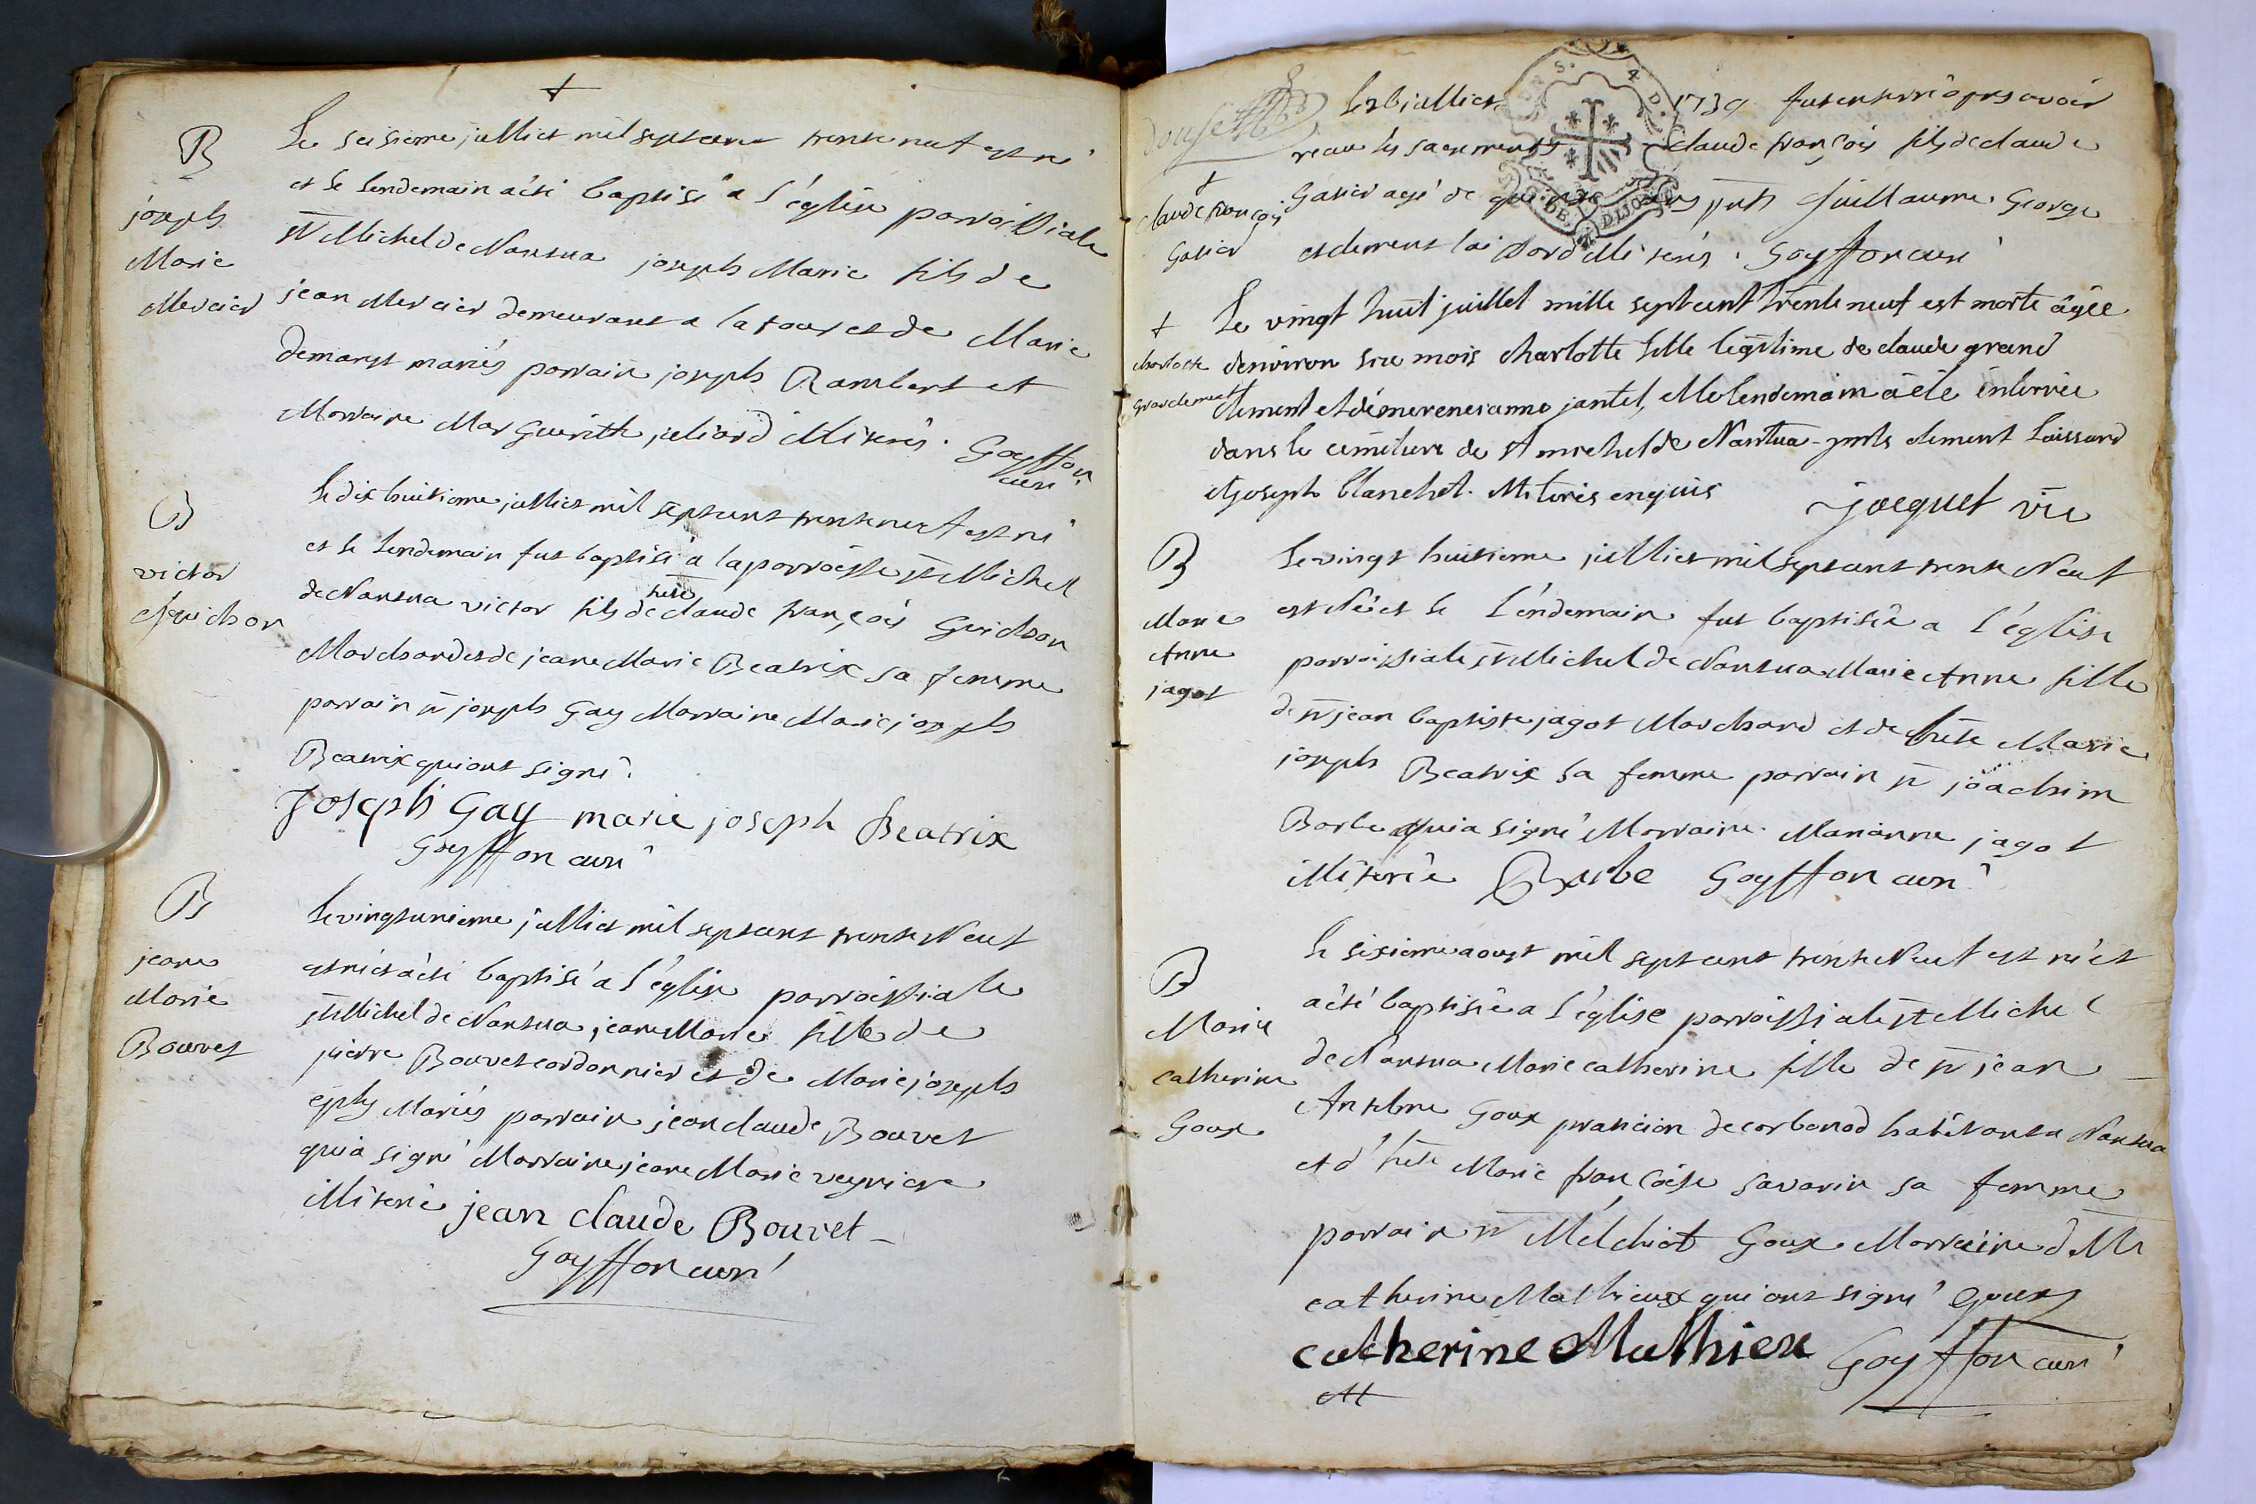 B
joseph
Marie
Mercier
Le seisieme julliet mil septcent trente neuf est né
et le lendemain a été baptisé a l'église parroissiale
st Michel de Nantua joseph Marie fils de
jean Mercier demeurant a la tour et de Marie
demaryt mariés parrain joseph Rambert et
Marraine Margueritte juliard illiterés. Goyffon
curé
B
victor
Guichon
le dix huitieme julliet mil septcent trente neuf est né
et le lendemain fut baptisé a la parroisse st Michel
de Nantua victor fils de claude françois Guichon
Marchand et de jeane Marie Beatrix sa femme
parrain sr joseph Gay Marraine Marie joseph
Beatrix qui ont signé.
Joseph Gay marie joseph Beatrix
Goyffon curé
B
jeane
Marie
Bouvet
le vingt unieme julliet mil septcent trente Neuf
est né et a été baptisé a l'église parroissiale
st Michel de Nantua jeane Marie fille de
pierre Bouvet cordonnier et de Marie joseph
Mariés parrain jean claude Bouvet
qui a signé Marraine jeane Marie veyriere
illiterée jean claude Bouvet
Goyffon curé
douse
Le julliet 1739 fut enterré aprs avoir
receu les sacrements claude françois fils de claude
claude françois
Gasier
Gasier agé de quinse ans pnts Guillaume George
et clement loi illiterés. Goyffon curé
charlotte
grandclement
Le vingt huit juillet mille septcent trente neuf est morte agée
denviron six mois charlotte fille legitime de claude grand
clement et de jantet, le lendemain a été enterrée
dans le cemetiere de st michel de Nantua pnts clement laissard
et joseph blanchet. illiterés enquis
jacquet vic
B
Marie
Anne
jagot
le vingt huitieme julliet mil septcent trente Neuf
est née et le lendemain fut baptisée a l'église
parroissiale st Michel de Nantua Marie Anne fille
de sr jean baptiste jagot Marchand et de Marie
joseph Beatrix sa femme parrain sr joachim
Barbe qui a signé Marraine Marianne jagot
illiterée Barbe Goyffon curé
B
Marie
catherine
Goux
le sixieme aoust mil septcent trente Neuf est né et
a été baptisée a l'église parroissiale st Michel
de Nantua Marie catherine fille de sr jean
Anthelme Goux praticien de corbonod habitant a Nantua
et d' Marie françoise savarin sa femme
parrain sr Melchiot Goux Marraine dlle
catherine Mathieux qui ont signé Goux
catherine Mathieu Goyffon curé